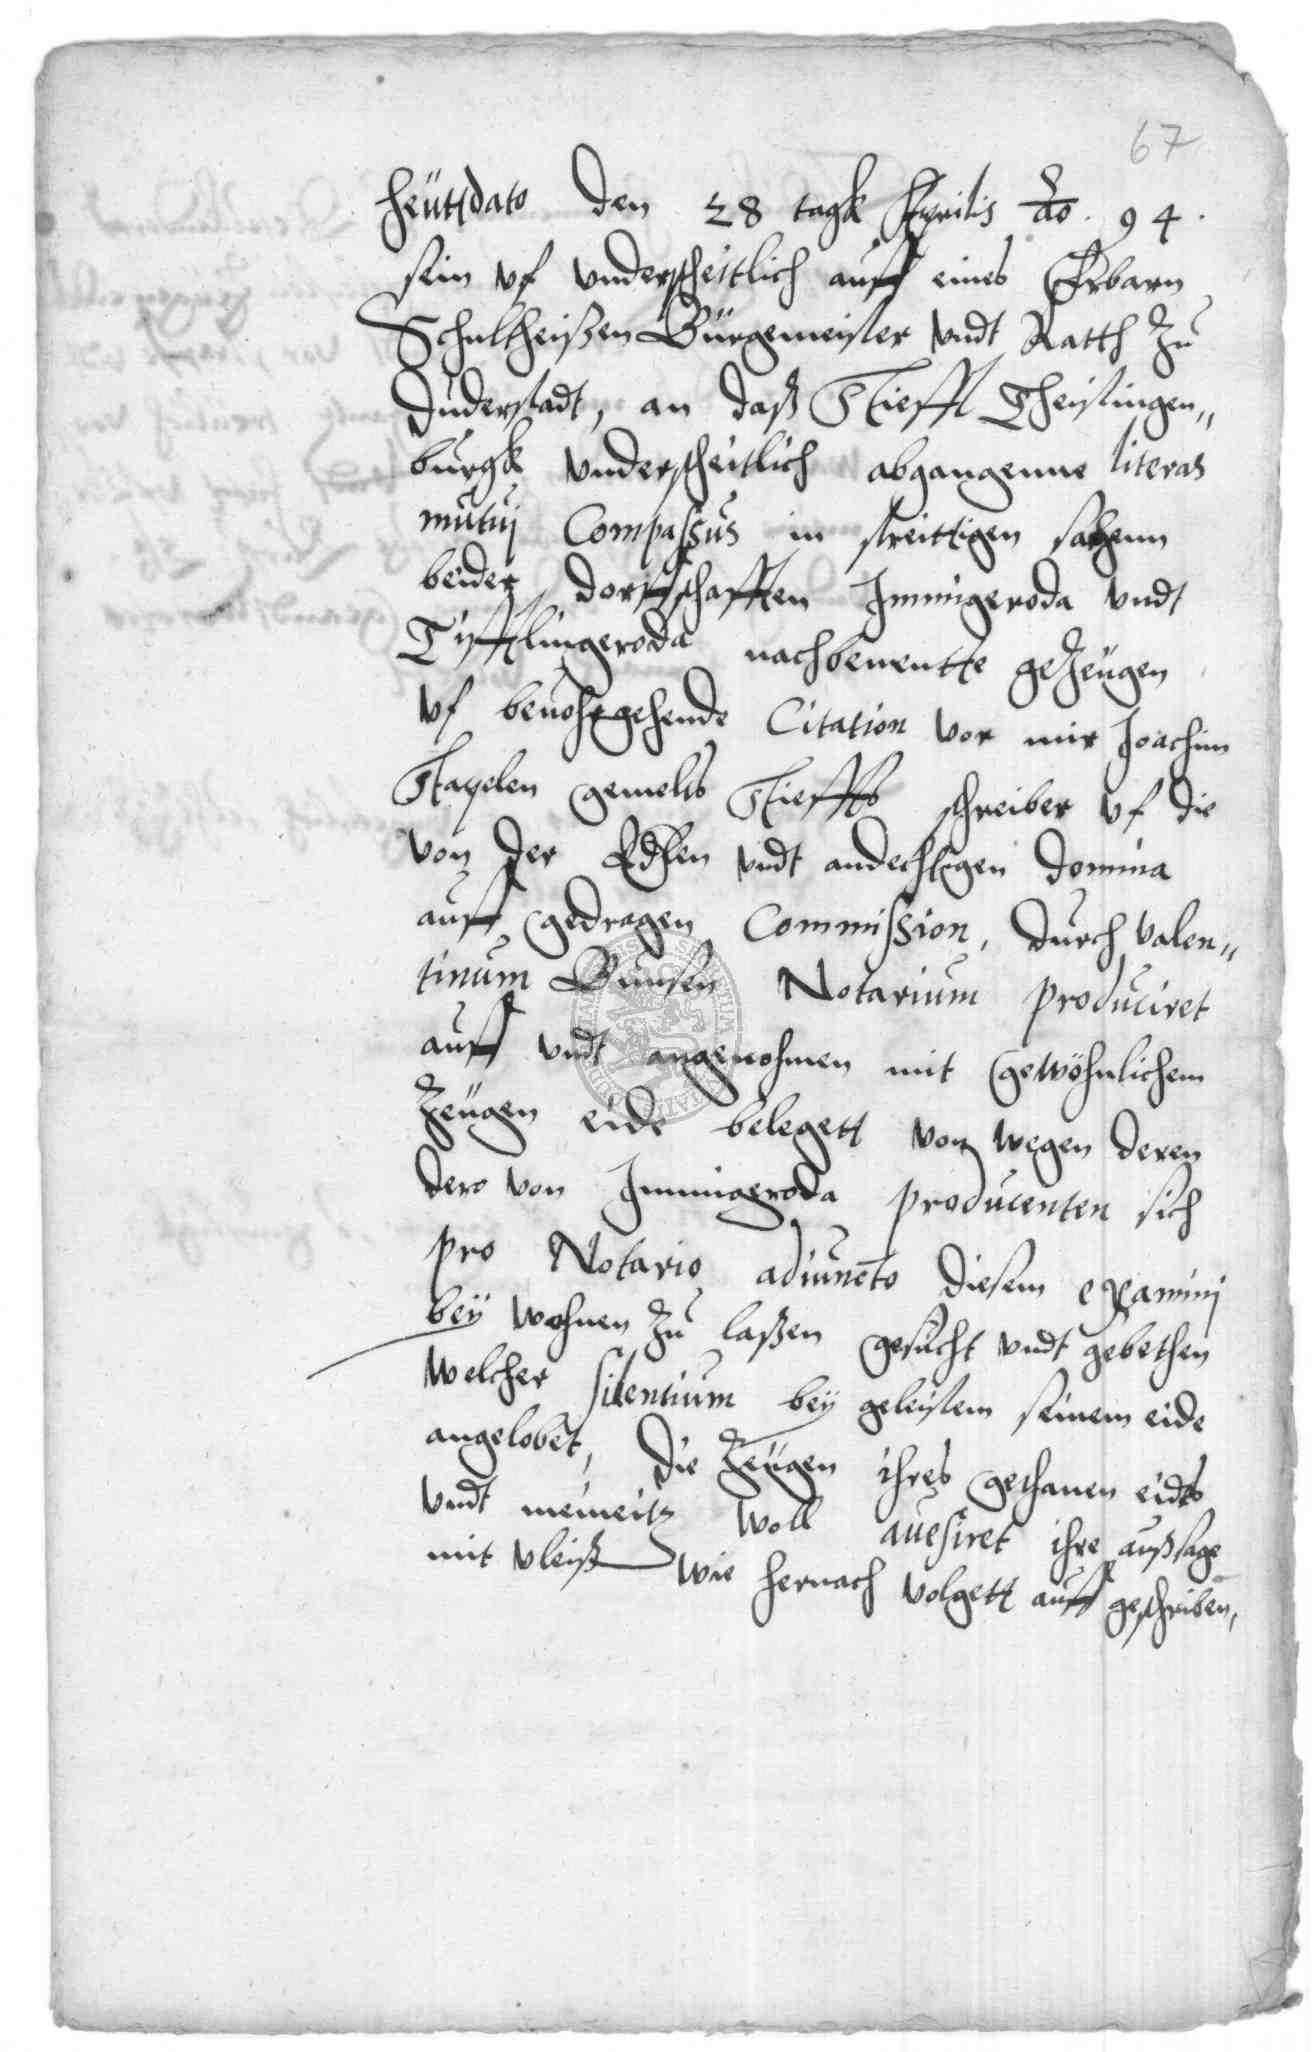 67
Heuttdato den 28 tagk Aprilis Ao. 94.
sein vf vnderscheitlich auff eines Erbarn
Schultheißen Bürgemeister vndt Ratth zu
Duderstadt, an daß Stiefft Theistingen„
burgk vnderscheitlich abgangenne literas
mutuj Compassus in streittigen sachenn
beider dorffschafften Immigeroda vndt
Tifftlingeroda nachbenentte geZeugen
vf beuohrgehende Citation vor mir Joachim
gemelts Stieffts schreiber vf die
von der Edlen vndt andechtigen Domina
auff gedragen Commission, durch Valen„
tinum Bunsen Notarium produciret
auff vndt angenohmen mit gewöhnlichem
Zeugen eide belegett von wegen deren
dero von Immigeroda producenten sich
pro Notario adiuncto diesem examinj
bey wohnen zu laßen gesucht vndt gebethen
welcher silentium bey geleistem seinem eide
angelobet, die Zeugen ihres gethanen eidts
vndt meineitz woll auesiret ihre außsage
mit vleiß wie hernach volgett auff geschriben,